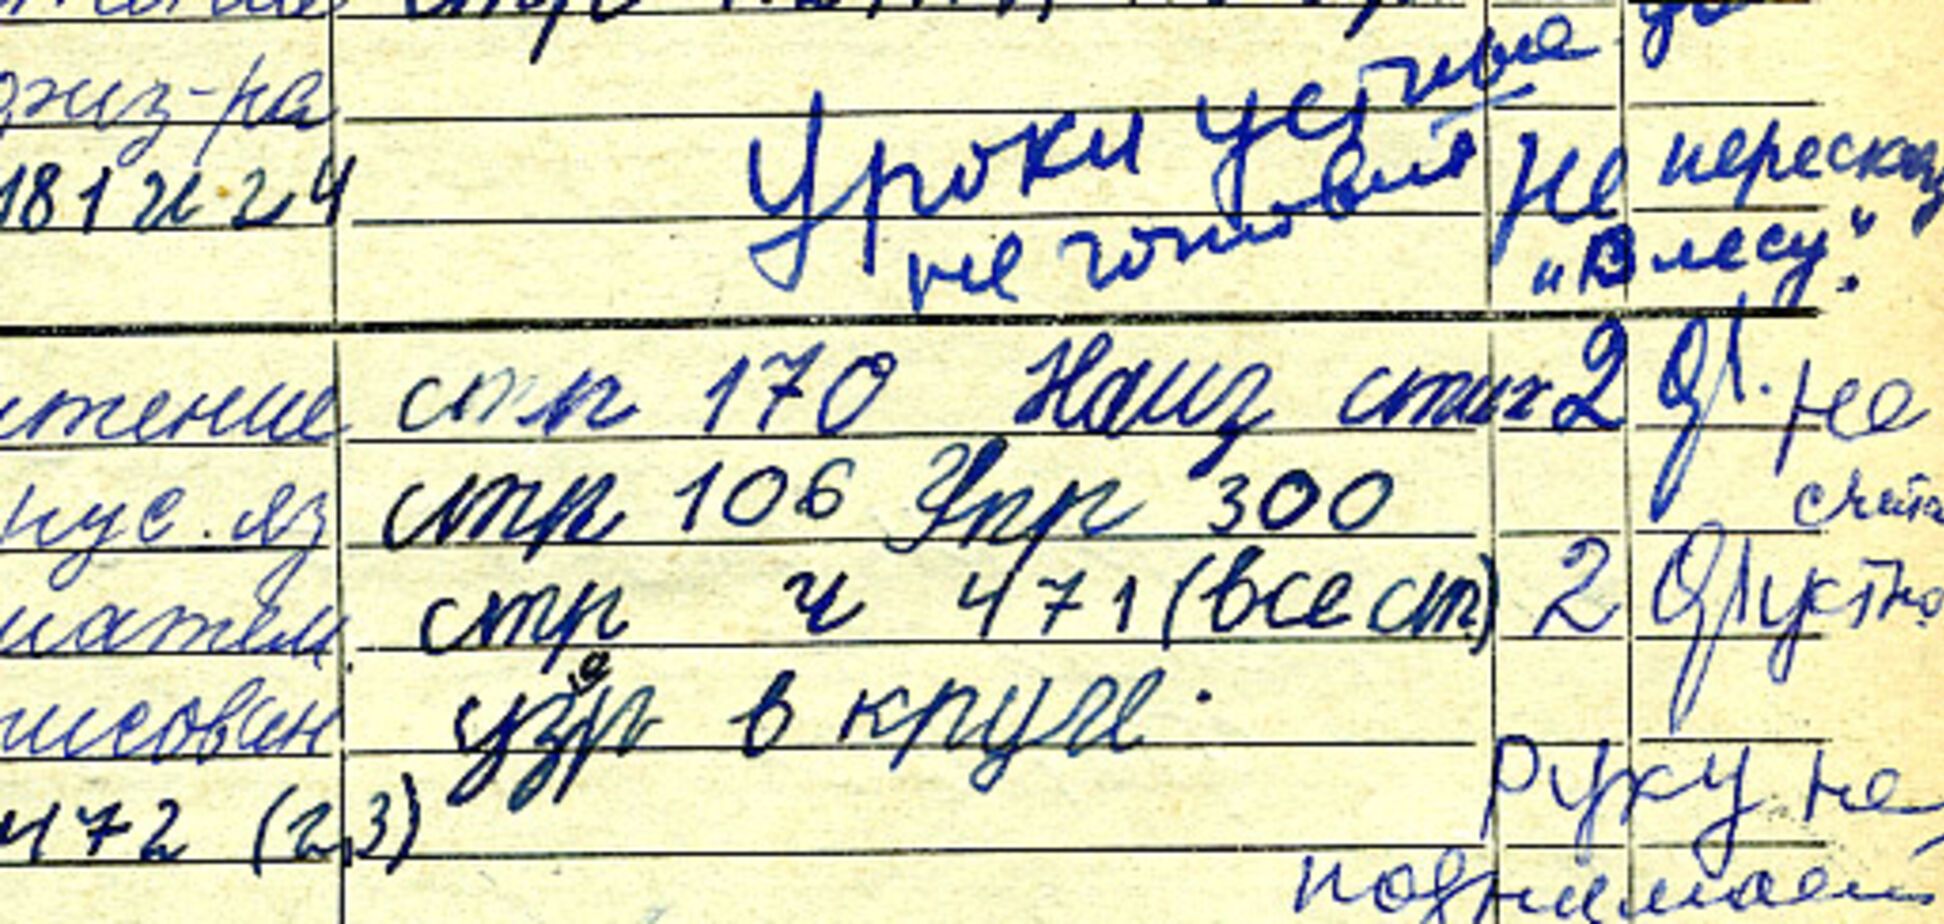 физ-ра
181 и 24
Уроки устные
не готовит
Не пересказ
"В лесу".
чтение стр 170 Наиз стих 2
не
рус. яз стр 106 Упр 300
счита
матем. стр ч 471 (все ст) 2 устно
рисован узор в круге.
472 (2,3)
Руку не
поднимает